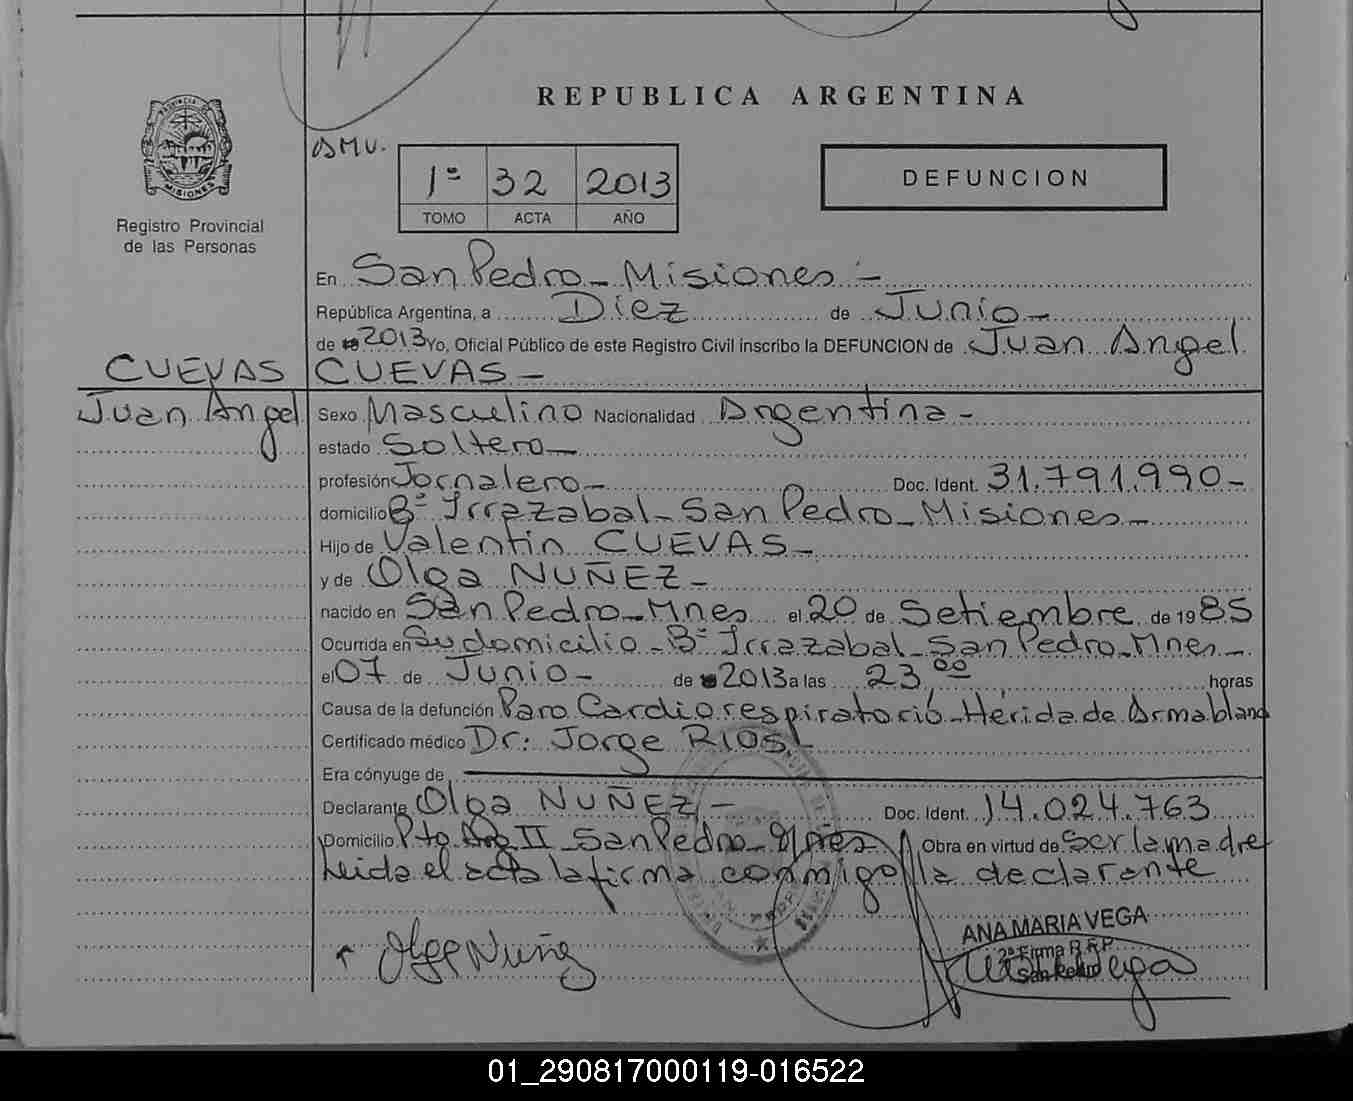 REPUBLICA ARGENTINA
PROVINCIA DE
MISIONES
Registro Provincial
de las Personas
1º 32 2013
TOMO ACTA AÑO
DEFUNCION
En San Pedro - Misiones -
República Argentina, a Diez de Junio -
de 2013 Yo, Oficial Público de este Registro Civil inscribo la DEFUNCION de Juan Angel
CUEVAS CUEVAS -
Juan Angel Sexo Masculino Nacionalidad Argentina -
estado Soltero -
profesión Jornalero - Doc. Ident. 31.791.990 -
domicilio Bº Irrazabal - San Pedro - Misiones -
Hijo de Valentin CUEVAS -
y de Olga NUÑEZ -
nacido en San Pedro - Mnes el 20 de Setiembre de 1985
Ocurrida en Su domicilio - Bº Irrazabal - San Pedro - Mnes -
el 07 de Junio - de 2013 a las 23,00 horas
Causa de la defunción Paro Cardiorespiratorio - Herida de Arma blanca
Certificado médico Dr: Jorge RIOS -
Era cónyuge de
Declarante Olga NUÑEZ - Doc. Ident. 14.024.763
Domicilio Pto Arg II - San Pedro - Mnes Obra en virtud de Ser la madre
Leida el acta la firma conmigo la declarante
Olga Nuñez
ANA MARIA VEGA
2ª Firma R.P.P.
San Pedro
01_290817000119-016522